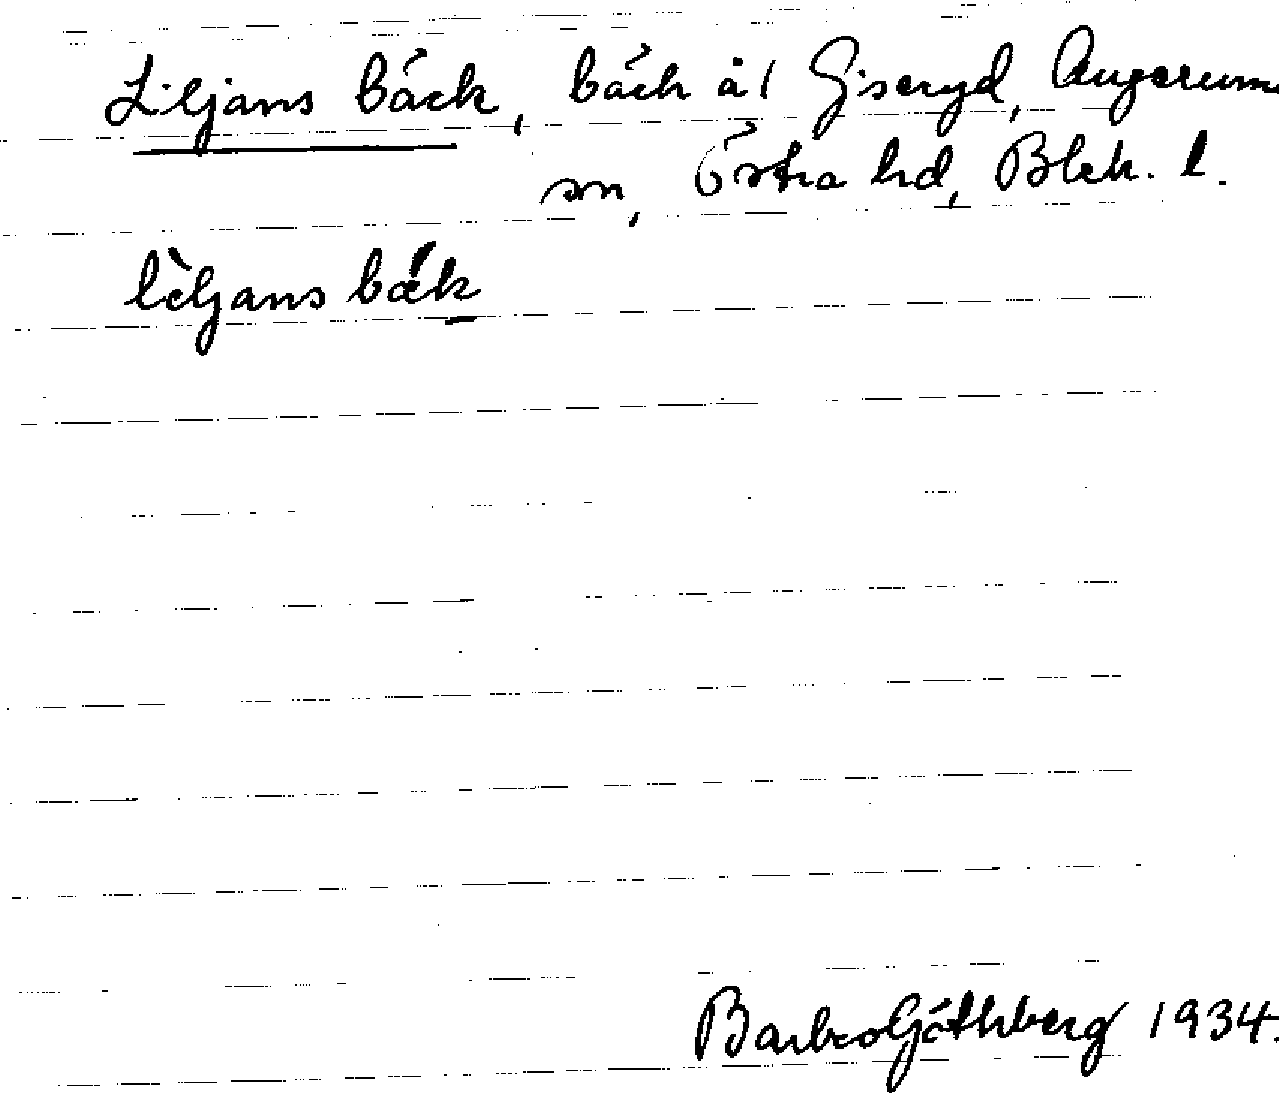 Liljans bäck, bäck åt Giseryd, Augerums
sn, Östra hd, Blek. l.
lèljans bæk
Barbro Göthberg 1934.